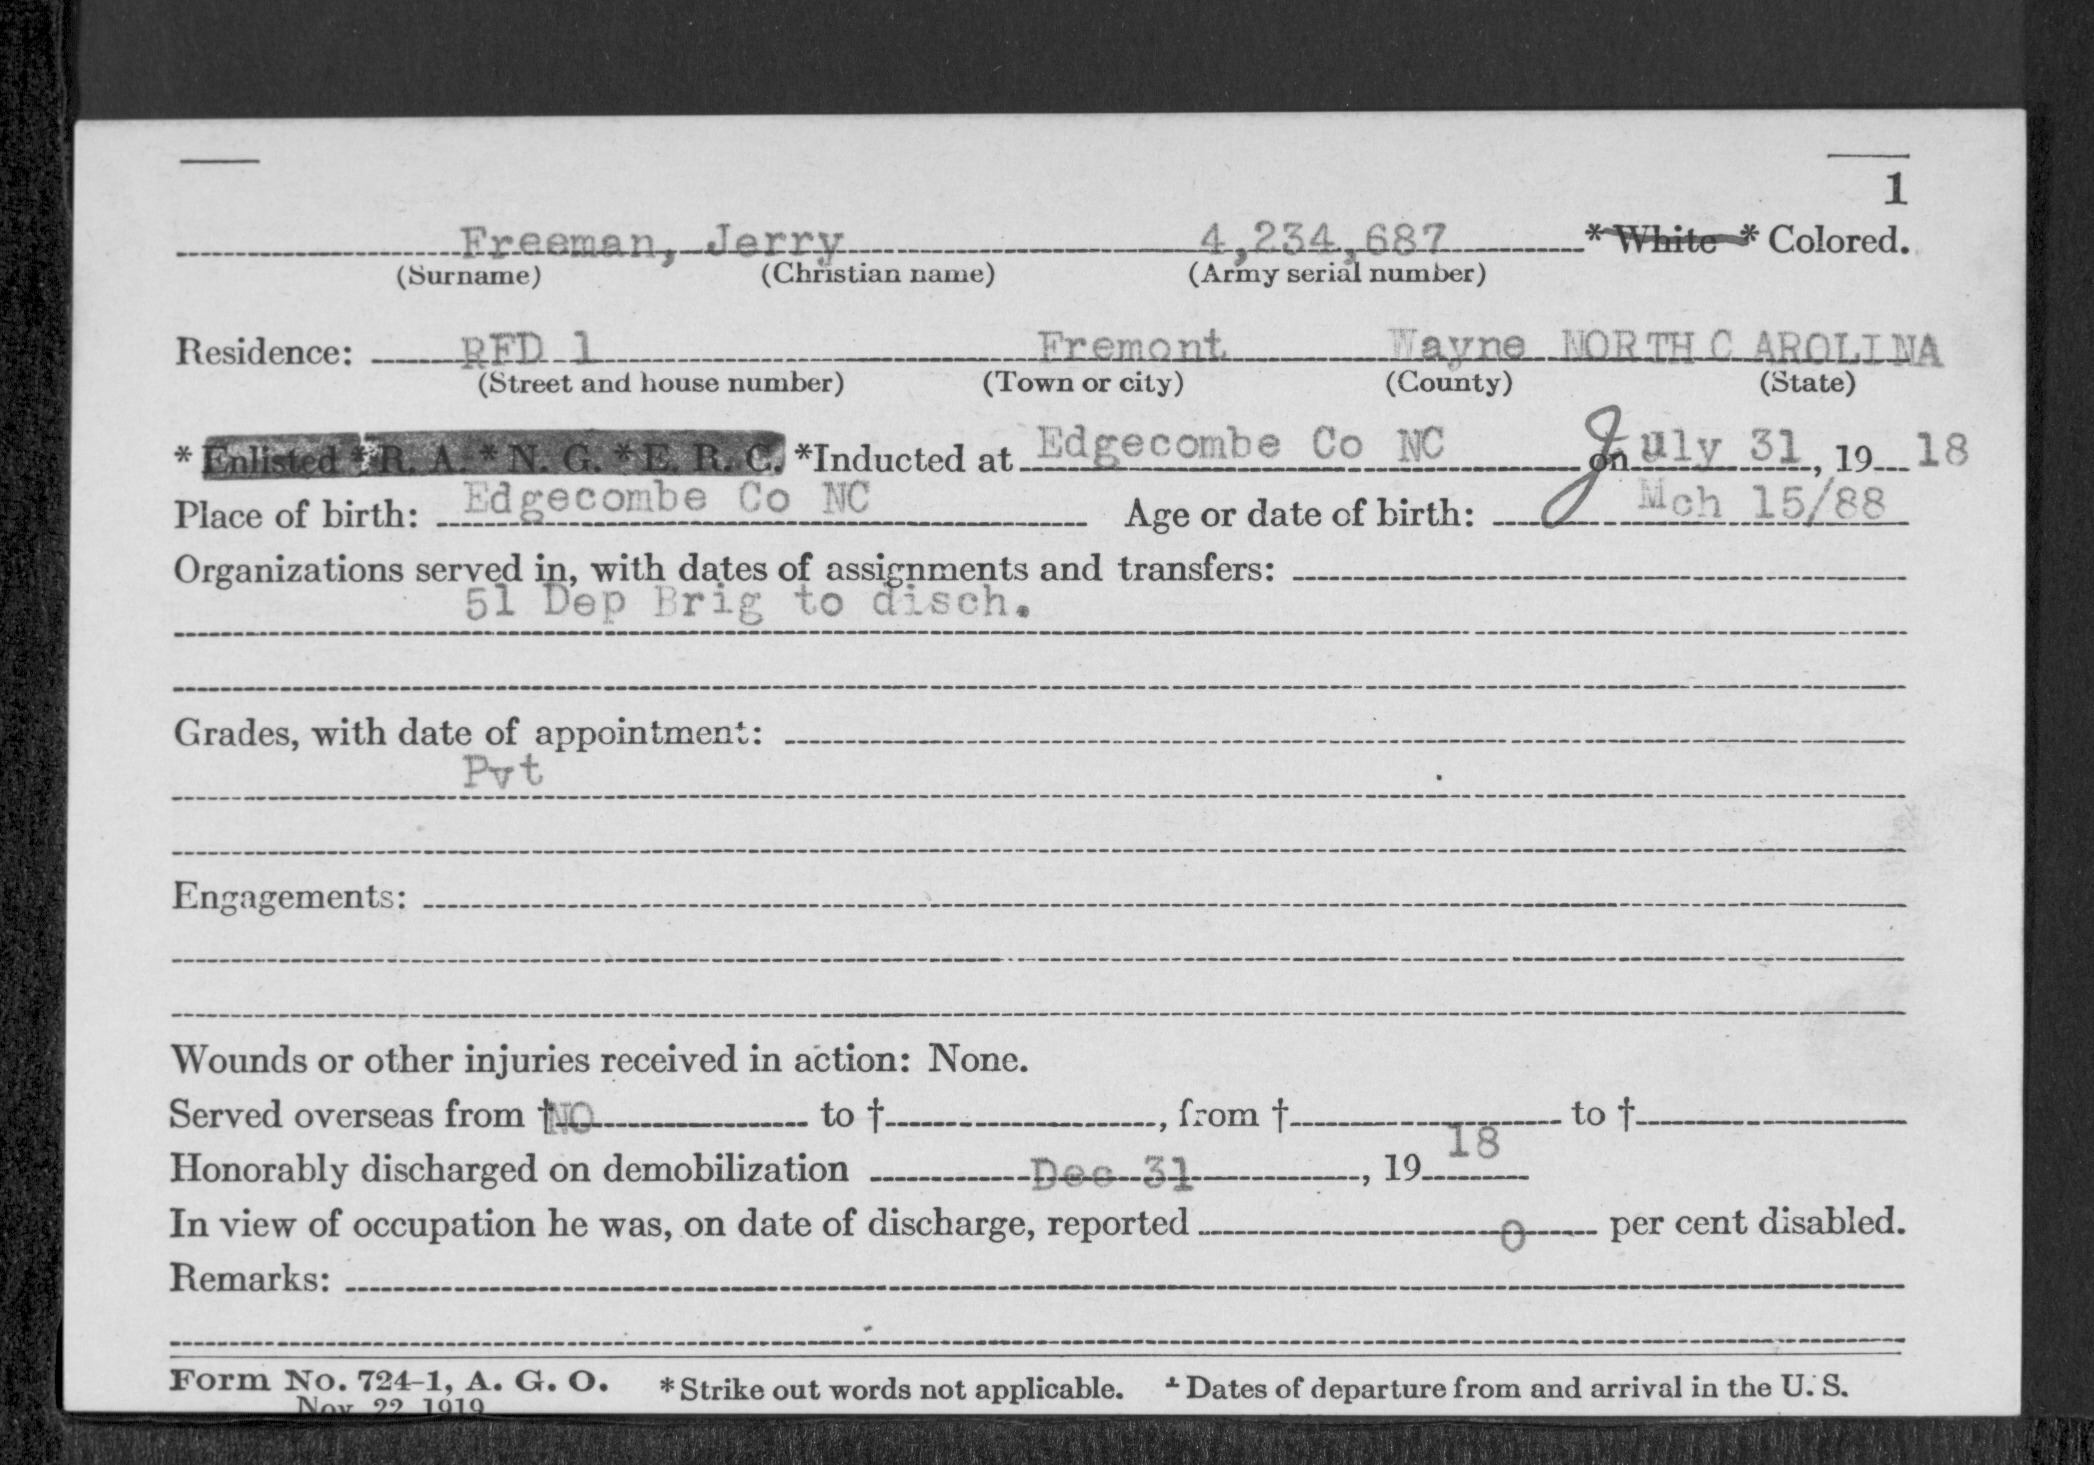 1
Freeman, Jerry 4,234,687 * White * Colored.
(Surname) (Christian name) (Army serial number)
Residence: RFD 1 Fremont Wayne NORTH CAROLINA
(Street and house number) (Town or city) (County) (State)
* Enlisted * R. A. * N. G. * E. R. C. *Inducted at Edgecombe Co NC on July 31, 1918
Place of birth: Edgecombe Co NC Age or date of birth: Mch 15/88
Organizations served in, with dates of assignments and transfers:
51 Dep Brig to disch.
Grades, with date of appointment:
Pvt
Engagements:
Wounds or other injuries received in action: None.
Served overseas from † NO to †, from † to †
Honorably discharged on demobilization Dec 31, 1918
In view of occupation he was, on date of discharge, reported 0 per cent disabled.
Remarks:
Form No. 724-1, A. G. O. * Strike out words not applicable. † Dates of departure from and arrival in the U. S.
Nov. 22, 1919